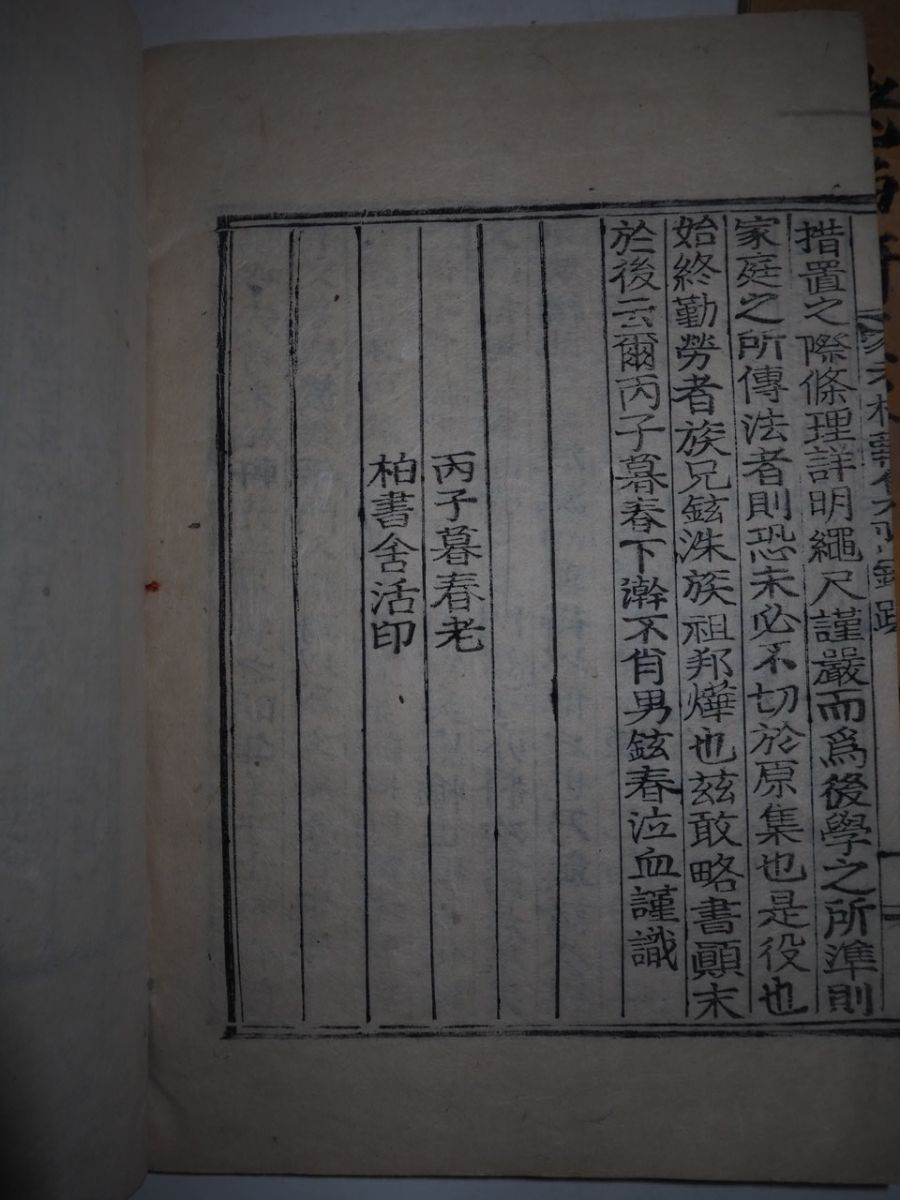 措置之際條理詳明繩尺謹嚴而爲後學之所準則
家庭之所傳法者則恐未必不切於原集也是役也
始終勤勞者族兄鉉洙族祖邦燁也玆敢略書顚末
於後云爾丙子暮春下澣不肖男鉉春泣血謹識
丙子暮春老
柏書舍活印